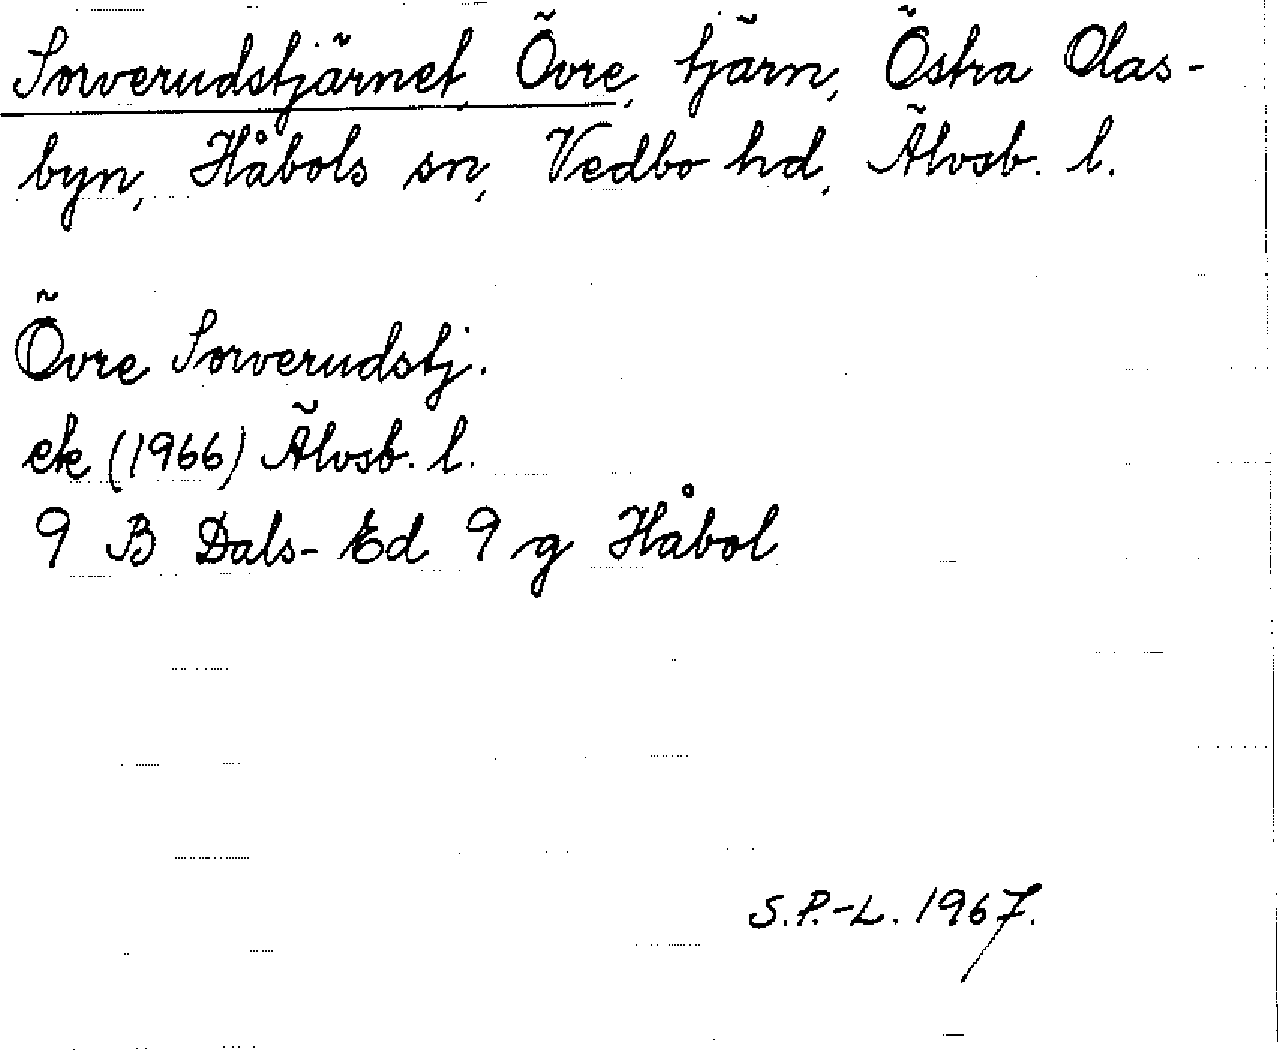 Sorverudstjärnet, Övre, tjärn, Östra Olas-
byn, Håbols sn, Vedbo hd, Älvsb. l.
Övre Sorverudstj.
ek (1966) Älvsb. l.
9 B Dals-Ed 9 g Håbol
S.P.-L. 1967.